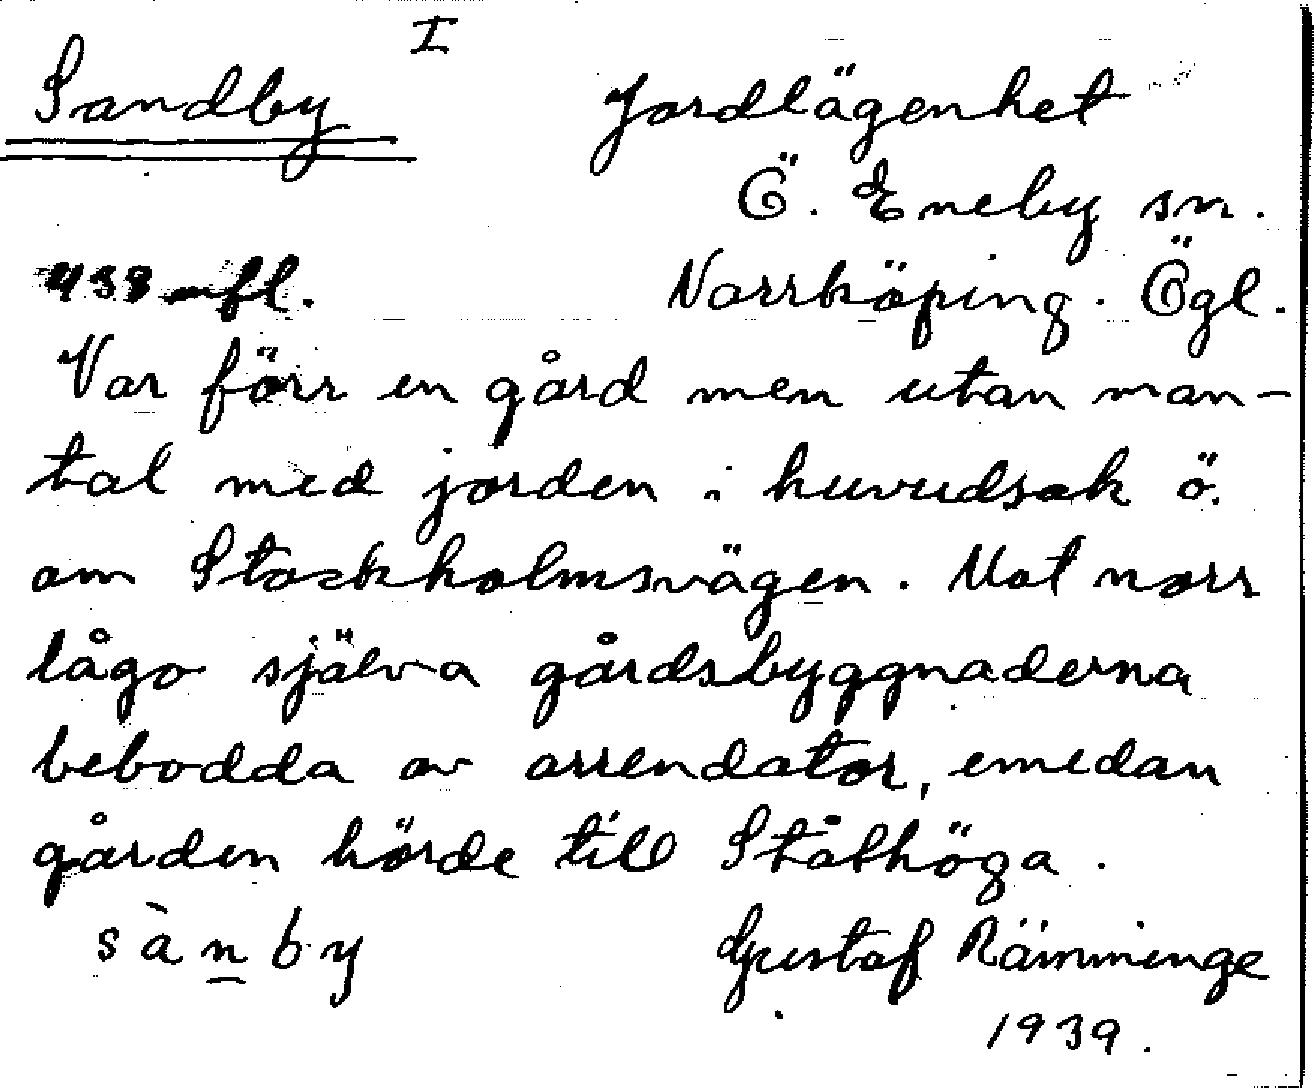 I
Sandby Jordlägenhet
Ö. Eneby sn.
Norrköping. Ögl.
Var förr en gård men utan man-
tal med jorden i huvudsak ö.
om Stockholmsvägen. Mot norr
lågo själva gårdsbyggnaderna
bebodda av arrendator, emedan
gården hörde till Ståthöga.
sànby Gustaf Rämminge
1939.